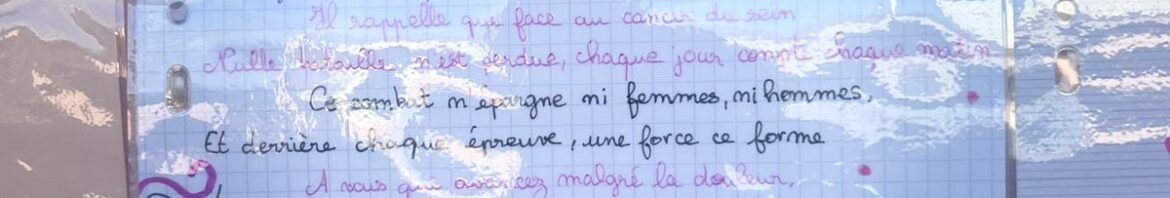 Il rappelle que face au cancer du sein
Nulle bataille n'est perdue, chaque jour compte chaque matin
Ce combat n'épargne ni femmes, ni hommes,
Et derrière chaque épreuve, une force ce forme
A vous qui avancez malgré la douleur,